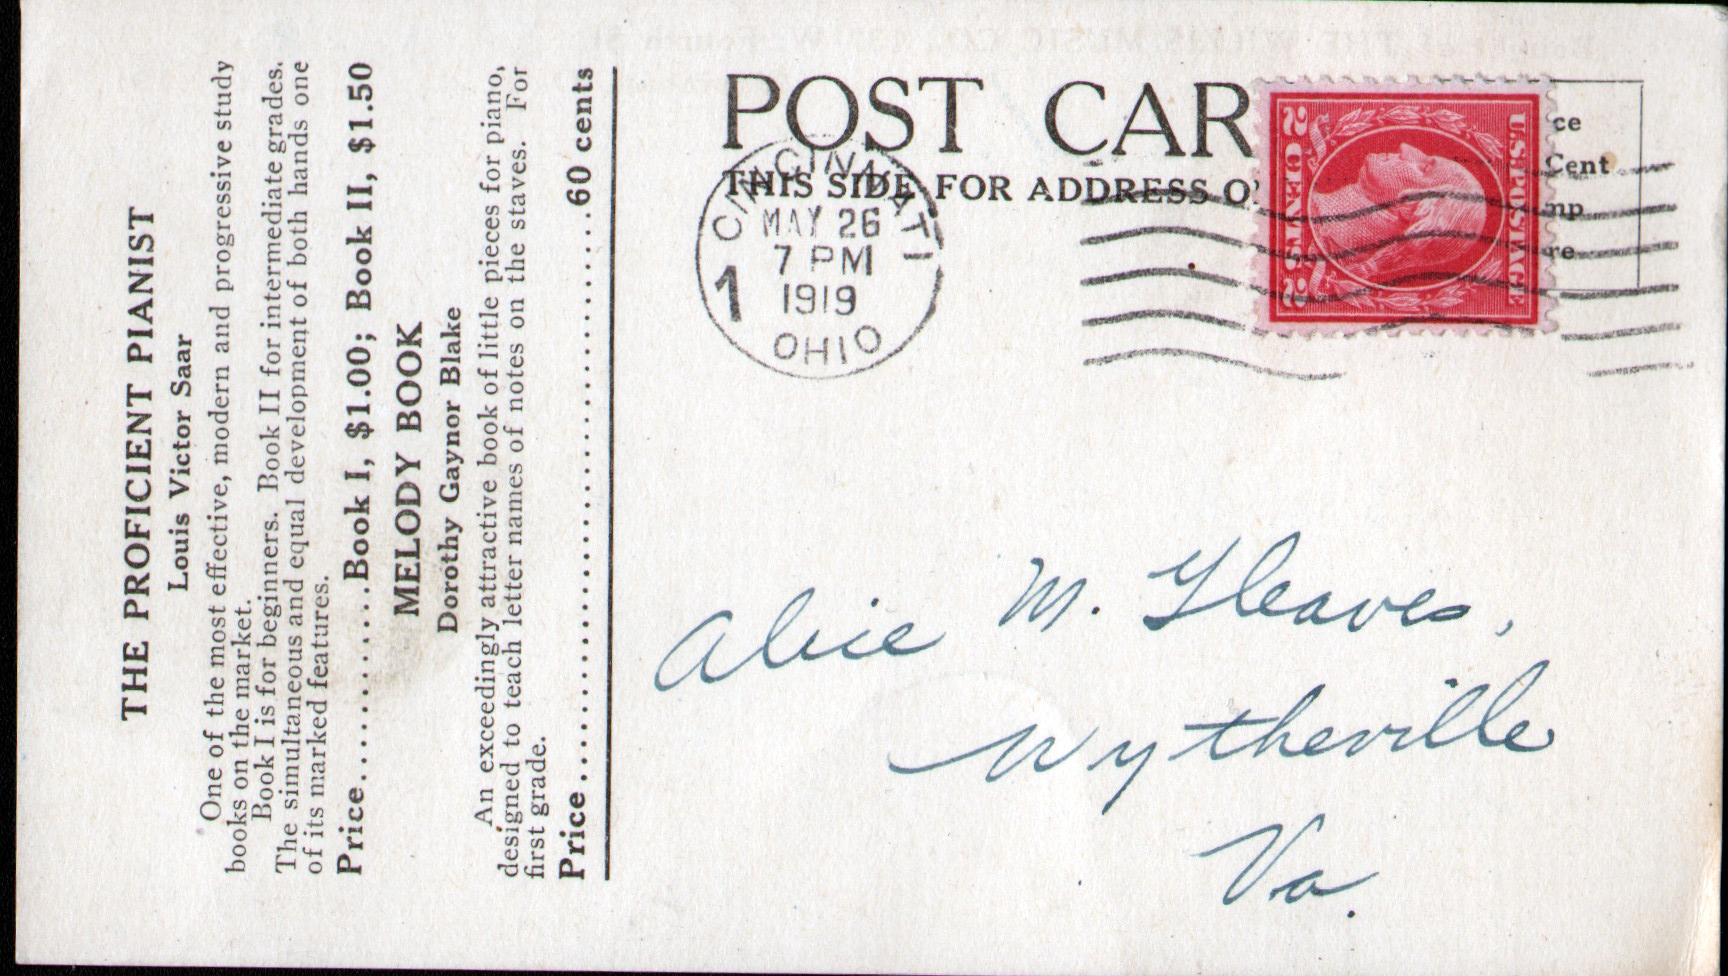 THE PROFICIENT PIANIST
Louis Victor Saar
One of the most effective, modern and progressive study
books on the market.
Book I is for beginners. Book II for intermediate grades.
The simultaneous and equal development of both hands one
of its marked features.
Price............Book I, $1.00; Book II, $1.50
MELODY BOOK
Dorothy Gaynor Blake
An exceedingly attractive book of little pieces for piano,
designed to teach letter names of notes on the staves. For
first grade.
Price........................................60 cents
POST CAR
THIS SIDE FOR ADDRESS O
ce
Cent
mp
re
U.S. POSTAGE
2 CENTS 2
CINCINNATI
MAY 26
7 PM
1919
1
OHIO
Alice M. Gleaves,
Wytheville
Va.